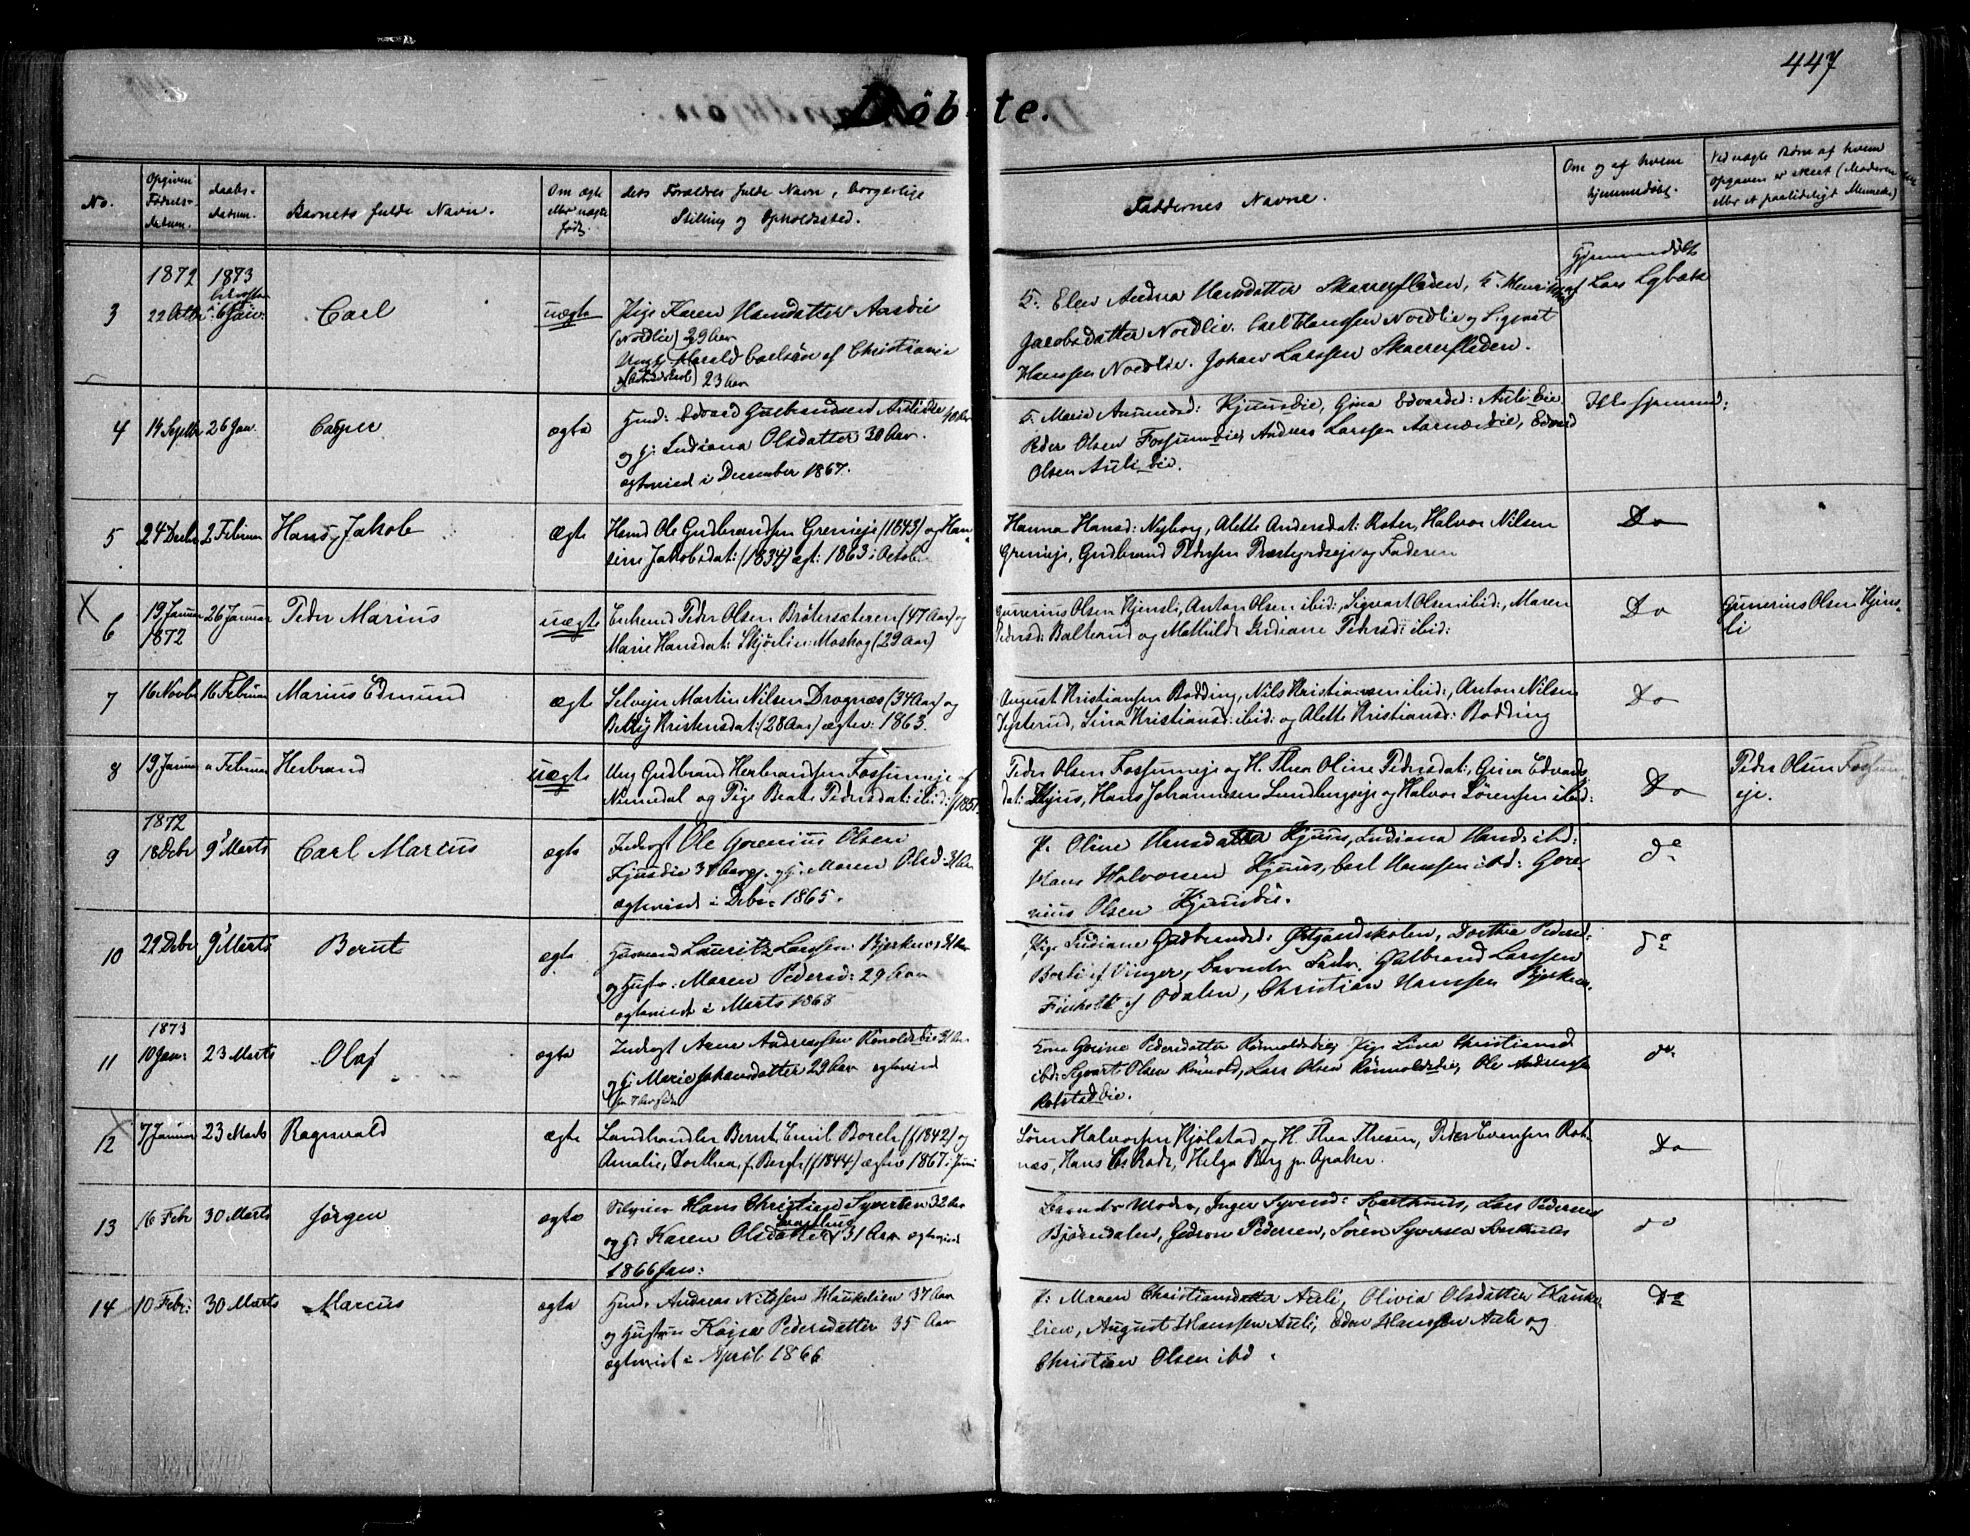 447
Döbte.
No.
Opgiven Fødsels-datum.
Daabs-datum.
Barnets fulde Navn.
Om ægte eller uægte født.
dets Forældres fulde Navn, borgerlige
Stilling og Opholdssted.
Faddernes Navne.
Om og af hvem hjemmedøbt.
Ved uægte Børn af hvem
Opgaven er skeet (Moderen
eller et paalideligt Menneske)
3
1872
22 Octbr
1873
6 Jan.
Carl
uægte
Pige Karen Hansdatter Aasdie
(Nordlie) 29 Aar
Ungk. Harald Carlsön af Christiania
23 Aar
F. Elev Andrea Hansdatter Skarersfladen,
Jacobsdatter Nordlie. Carl Hanssen Nordlie og Sigvart
Hanssen Nordlie. Johan Larssen Skarersfladen.
Hjemmedøbt
af Lars Lybæk
4
14 Septbr
26 Jan.
Casper
ægte
Hmd: Edvard Gulbrandsen Aulidie 40 Aar
og h: Indiana Olsdatter 30 Aar.
egteviet i December 1867.
F. Marie Amundsd: Kjuusdie, Gina Edvardsd: Aulidie
Peder Olsen Fossumdie, Andreas Larssen Aarnæsdie, Edvard
Olsen Aulidie.
Ikke hjemmed:
5
24 Decbr
2 Februar
Hans Jakob
Ægte
Hmd Ole Gudbrandsen Greneje (1843) og Han-
sine Jakobsdat: (1834) ægt: 1863 i Octob.
Hanna Hansd: Nyborg, Alette Andersdat: Roter, Halvor Nilsen
Greneje, Gudbrand Pedersen Præstgrdseje og Faderen
Do
6
19 Januar
1872
26 Januar
Peder Marius
uægte
Enkemd Peder Olsen Brøtersæteren (47 Aar) og
Marie Hansdat: Skjørlin: Moskog (29 Aar)
Gunerius Olsen Kjensli, Anton Olsen ibid:, Sigvart Olsen ibid:, Maren
Pedersd: Baltrud og Mathilde Indiane Pedersd: ibid:
Do
Gunerius Olsen Kjens-
li
7
16 Novbr
16 Februar
Marius Edmund
ægte
Selvejer Martin Nilsen Drognæs (34 Aar) og
Betsy Kristensdat: (28 Aar) ægtev: 1863.
August Kristiansen Bodding, Nils Kristiansen ibid:, Anton Nilsen
Systerud, Lina Kristiansd: ibid: og Alette Kristiansd: Bodding
Do
8
19 Januar
" Februar
Herbrand
uægte
Ung Gudbrand Herbrandsen Fossumeje af
Nannestad og Pige Beate Pedersdat: ibid: (1851)
Peder Olsen Fossumeje og H. Thea Oline Pedersdat:, Gina Edvards-
dat: Kjus, Hans Johannesen Lundbergseje og Halvor Sørensen ibid:
Do
Peder Olsen Fossum-
eje.
9
1872
18 Debr
9' Marts
Carl Marcus
ægte
Inderst Ole Gorenius Olsen
Kjusdie 31 Aar og h: Maren Olsd: 31 Aar
egteviede i Debr 1865.
P. Oline Hansdatter Kjuus, Indiana Hansd: ibd:
Hans Halvorsen Kjuus, Carl Hanssen ibd: Gore-
nius Olsen Kjuusdie.
do
10
29 Debr
9' Marts
Bernt
ægte
Husmand Lauritz Larssen Bjerknes 31 Aar
og Hustr: Maren Pedersd: 29 Aar
egteviede i Marts 1868
Pige Indiane Gudbrandsd: Østgaardskolen, Dorthea Pedersd:
Borli af Vinger, Barnets Fader, Gulbrand Larssen
Finholt af Odalen, Christian Hanssen Bjerknes.
do
11
1873
10 Jan:
23 Marts
Olaf
ægte
Inderst Arne Andreassen Rönolddie 31 Aar
og h: Marie Johansdatter 29 Aar egteviede
for 7 Aar siden
Kone Gorine Pedersdatter Rönnoldsdie, Pige Lina Christiansd
ibd: Sigvart Olsen Rönnold, Lars Olsen Rönnoldsdie, Ole Andreassen
Rolstaddie.
do
12
7 Januar
23 Marts
Ragnvald
ægte
Landhandler Bernt Emil Borch (f 1842) og
Amalie Dorthea, f. Bergh (f 1844) ægtev 1867 i Juni
Søren Halvorsen Kjølstad og H. Thea Thesen, Peder Evensen Rak-
næs, Hans Chr Rode, Helga Berg pr Apaker.
Do
13
16 Febr
30 Marts
Jörgen
ægte
Selveier Hans Christian Syverten 32 Aar
og h: Karen Olsdatter 31 Aar egteviede
1866 Jan:
Barnets Moder, Inger Syversd: Sarthunds, Lars Pedersen
Bjørndalen, Gedron Pedersen, Sören Syversen Sarthunds
do
14
10 Feb:
30 Marts
Marcus
ægte
Hmd. Andreas Nilssen Haukelien 37 Aar
og Hustrue Kajsa Pedersdatter 35 Aar
egteviet i April 1866
P: Maren Christiansdatter Auli, Olivia Olsdatter Hauke-
lien, August Hanssen Auli, Eden Hanssen Auli og
Christian Olsen ibd.
Do